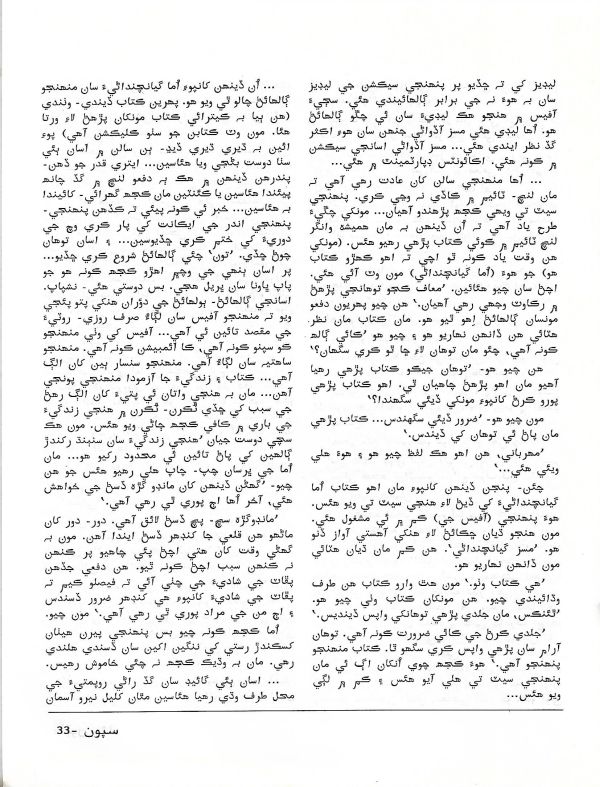 ليڊيز کي ته ڇڏيو پر پنهنجي سيڪشن جي ليڊيز
سان به هوءَ نه جي برابر ڳالهائيندي هئي. سڄيءَ
آفيس ۾ هنجو هڪ ليڊيءَ سان ئي چڱو ڳالهائڻ
هو. اُها ليڊي هئي مسز آڏواڻي جنهن سان هوءَ اڪثر
گڏ نظر ايندي هئي... مسز آڏواڻي اسانجي سيڪشن
۾ ڪونه هئي. اڪائونٽس ڊپارٽمينٽ ۾ هئي...
... اُها منهنجي سالن کان عادت رهي آهي ته
مان لنچ- ٽائيم ۾ ڪاڏي نه وڃي ڪري. پنهنجي
سيٽ تي ويهي ڪجھ پڙهندو آهيان... مونکي چڱيءَ
طرح ياد آهي ته اُن ڏينهن به مان هميشه وانگر
لنچ ٽائيم ۾ ڪوئي ڪتاب پڙهي رهيو هئس. (مونکي
هن وقت ياد ڪونه ٿو اچي ته اهو ڪهڙو ڪتاب
هو) جو هوءَ (اُما گيانچنداڻي) مون وٽ آئي هئي.
اچڻ سان چيو هئائين. ’معاف ڪجو توهانجي پڙهڻ
۾ رڪاوٽ وجهي رهي آهيان.‘ هن چيو پهريون دفعو
مونسان ڳالهائڻ اِهو ٿيو هو. مان ڪتاب مان نظر
هٽائي هن ڏانهن نهاريو هو ۽ چيو هو ’ڪائي ڳالھ
ڪونه آهي، چئو مان توهان لاءِ ڇا ٿو ڪري سگهان؟‘
هن چيو هو- ’توهان جيڪو ڪتاب پڙهي رهيا
آهيو مان اهو پڙهڻ چاهيان ٿي. اهو ڪتاب پڙهي
پورو ڪرڻ کانپوءِ مونکي ڏيئي سگهندا؟‘
مون چيو هو- ’ضرور ڏيئي سگهندس... ڪتاب پڙهي
مان پاڻ ئي توهان کي ڏيندس.‘
’مهرباني، هن اهو هڪ لفظ چيو هو ۽ هوءَ هلي
ويئي هئي...‘
چئن- پنجن ڏينهن کانپوءِ مان اهو ڪتاب اُما
گيانچنداڻيءَ کي ڏيڻ لاءِ هنجي سيٽ تي ويو هئس.
هوءَ پنهنجي (آفيس جي) ڪم ۾ ئي مشغول هئي.
مون هنجو ڌيان ڇڪائڻ لاءِ هنکي آهستي آواز ڏنو
هو. ’مسز گيانچنداڻي‘. هن ڪم مان ڌيان هٽائي
مون ڏانهن نهاريو هو.
’هي ڪتاب وٺو.‘ مون هٿ وارو ڪتاب هن طرف
وڌائيندي چيو. هن مونکان ڪتاب وٺي چيو هو.
’ٿئنڪس، مان جلدي پڙهي توهانکي واپس ڏينديس.‘
’جلدي ڪرڻ جي ڪائي ضرورت ڪونه آهي. توهان
آرام سان پڙهي واپس ڪري سگهو ٿا. ڪتاب منهنجو
پنهنجو آهي.‘ هوءَ ڪجھ چوي اُنکان اڳ ئي مان
پنهنجي سيٽ تي هلي آيو هئس ۽ ڪم ۾ لڳي
ويو هئس...
... اُن ڏينهن کانپوءِ اُما گيانچنداڻيءَ سان منهنجو
ڳالهائڻ چالو ٿي ويو هو. پهرين ڪتاب ڏيندي- وٺندي
(هن ٻيا به ڪيترائي ڪتاب مونکان پڙهڻ لاءِ ورتا
هئا. مون وٽ ڪتابن جو سٺو ڪليڪشن آهي) پوءِ
ائين به ڏيري ڏيري ڏيڍ- ٻن سالن ۾ اسان ٻئي
سٺا دوست بڻجي ويا هئاسين... ايتري قدر جو ڏهن-
پندرهن ڏينهن ۾ هڪ ٻه دفعو لنچ ۾ گڏ چانهه
پيئندا هئاسين يا ڪئنٽين مان ڪجھ گهرائي- کائيندا
به هئاسين... خبر ئي ڪونه پيئي ته ڪڏهن پنهنجي-
پنهنجي اندر جي ايڪانت کي پار ڪري وچ جي
دوريءَ کي ختم ڪري ڇڏيوسين... ۽ اسان توهان
چوڻ ڇڏي. ’تون‘ چئي ڳالهائڻ شروع ڪري ڇڏيو...
پر اسان ٻنهي جي وچ۾ اهڙو ڪجھ ڪونه هو جو
پاپ ڀاونا سان ڀريل هجي. بس دوستي هئي- نشپاپ.
اسانجي ڳالهائڻ- ٻولهائڻ جي دؤران هنکي پتو پئجي
ويو ته منهنجو آفيس سان لڳاءُ صرف روزي- روٽيءَ
جي مقصد تائين ئي آهي... آفيس کي وٺي منهنجو
ڪو سپنو ڪونه آهي، ڪا اَئمبيشن ڪونه آهي. منهنجو
ساهتيہ سان لڳاءُ آهي. منهنجو سنسار ٻين کان الڳ
آهي... ڪتاب ۽ زندگيءَ جا آزمودا منهنجي پونجي
آهن... مان به هنجي واتان ئي پتيءَ کان الڳ رهڻ
جي سبب کي ڇڏي ٽڪرن- ٽڪرن ۾ هنجي زندگيءَ
جي باري ۾ ڪافي ڪجھ ڄاڻي ويو هئس. مون هڪ
سچي دوست جيان ’هنجي زندگيءَ سان سنٻنڌ رکندڙ
ڳالهين کي پاڻ تائين ئي محدود رکيو هو... مان
اُما جي ڀرسان چپ- چاپ هلي رهيو هئس جو هن
چيو- ’گهڻن ڏينهن کان مانڊو گڙھ ڏسڻ جي خواهش
هئي، آخر اُها اڄ پوري ٿي رهي آهي.‘
’مانڊوگڙھ سچ- پچ ڏسڻ لائق آهي. دور- دور کان
ماڻهو هن قلعي جا کنڊهر ڏسڻ ايندا آهن. مون به
گهڻي وقت کان هتي اچڻ پئي چاهيو پر ڪنهن
نه ڪنهن سبب اچڻ ڪونه ٿيو. هن دفعي جڏهن
ڀڳت جي شاديءَ جي چٺي آئي ته فيصلو ڪيم ته
ڀڳت جي شاديءَ کانپوءِ هي کنڊهر ضرور ڏسندس
۽ اڄ من جي مراد پوري ٿي رهي آهي.‘ مون چيو.
اُما ڪجھ ڪونه چيو بس پنهنجي پيرن هيٺان
کسڪندڙ رستي کي ننگين اکين سان ڏسندي هلندي
رهي. مان به وڌيڪ ڪجھ نه چئي خاموش رهيس.
... اسان ٻئي گائيڊ سان گڏ راڻي روپمتيءَ جي
محل طرف وڌي رهيا هئاسين مٿان کليل نيرو آسمان
سپون -33